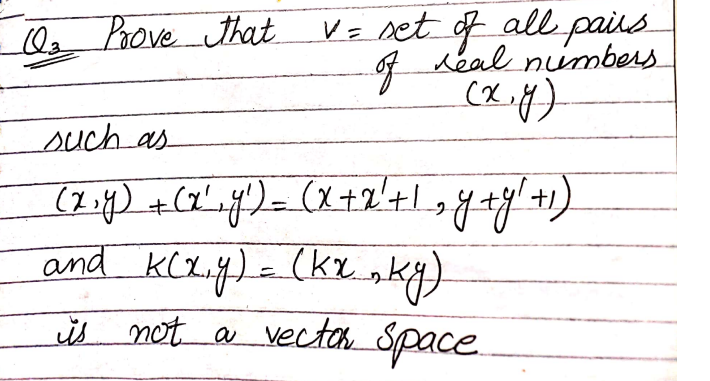 Q3 Prove that V = set of all pairs
of real numbers
(x,y)
such as
(x,y) + (x',y') = (x+x'+1, y+y'+1)
and k(x,y) = (kx, ky)
is not a vector space